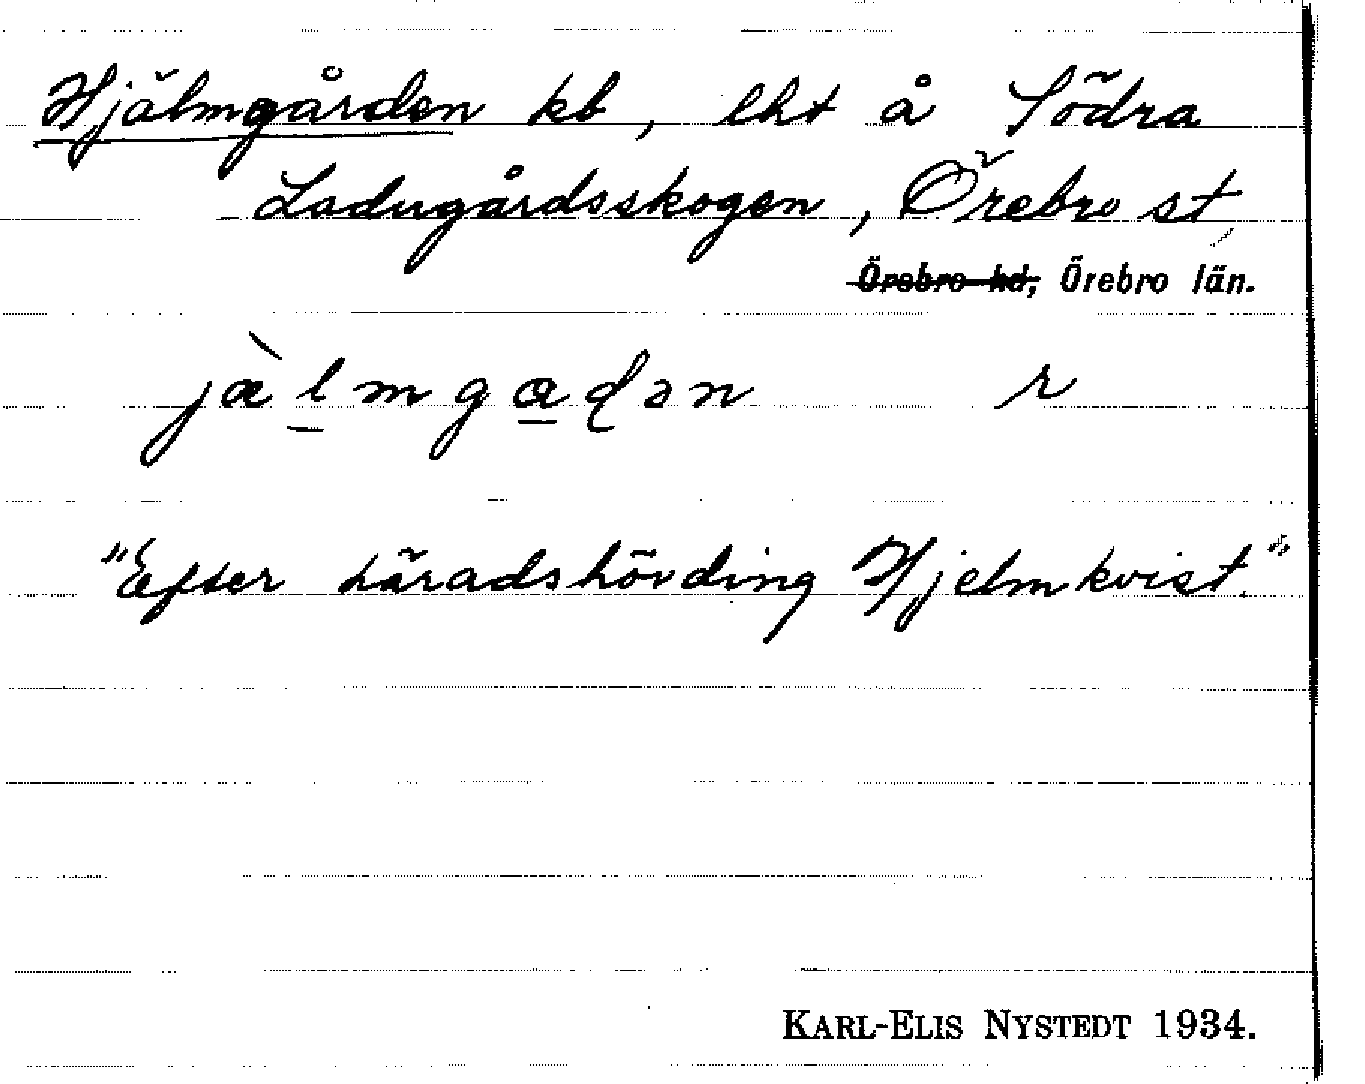 Hjälmgården kb, lht å Södra
Ladugårdsskogen, Örebro st
Örebro hd, Örebro län.
jæ̀l̠mga̠ɖən r
"Efter häradshövding Hjelmkvist."
KARL-ELIS NYSTEDT 1934.